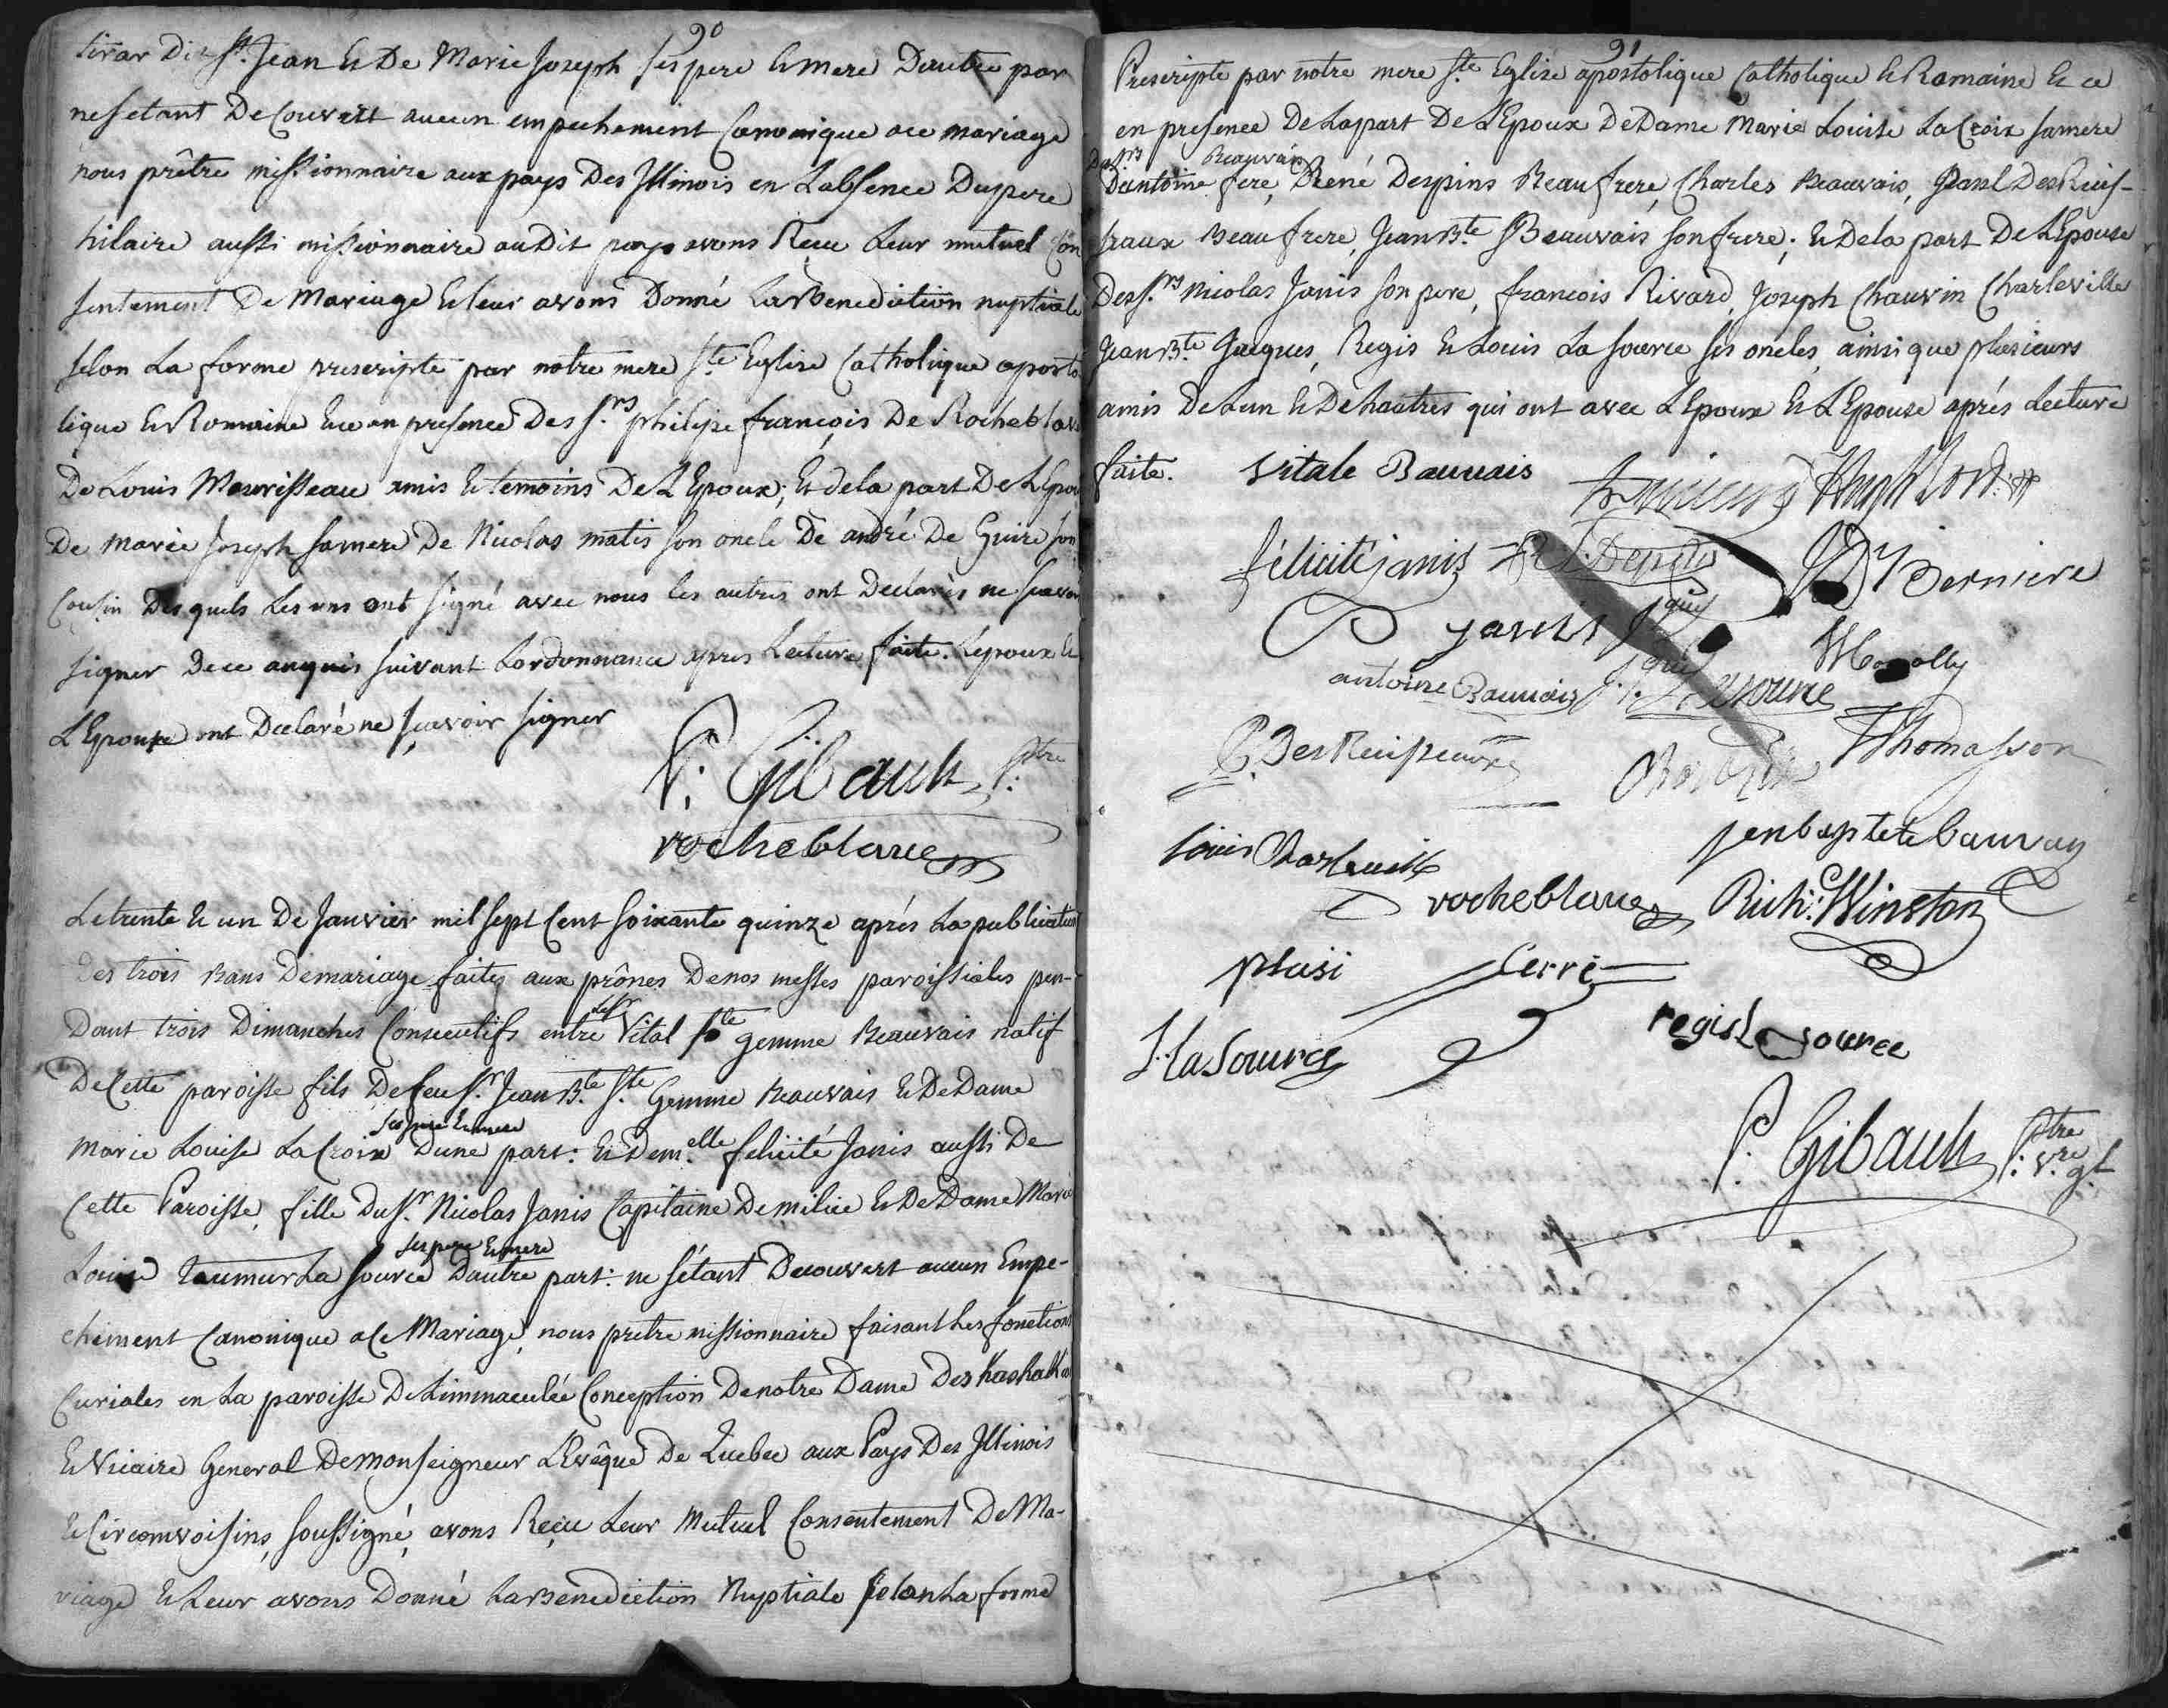 90
tirar Dit St. Jean Et De Marie Joseph ses pere Et mere Dautre par
ne setant Decouvert aucun empechement Canonique a ce mariage
nous prêtre missionnaire aux pays Des Illinois en Labsence Du pere
hilaire aussi missionnaire au Dit pays avons Reçu Leur mutuel Con
sentement De Mariage Et leur avons Donné La Benediction nuptiale
selon La forme prescripte par notre mere Ste Eglise Catholique aposto
lique Et Romaine Et ce en presence Des Srs philipe françois De Rocheblave
De Louis Mourisseau amis Et temoins De L'Epoux; Et de la part De L'Epou
De Marie Joseph sa mere De Nicolas matis son oncle De andré De Guire son
Cousin Desquels Les uns ont signé avec nous les autres ont Declarés ne scavoir
signer De ce anquis suivant Lordonnance apres Lecture faite. Lepoux Et
L'Epouse ont Declaré ne sçavoir signer
P. Gibault Ptre
rocheblave
Le trente Et un De Janvier mil sept Cent soixante quinze aprés La publication
Des trois Bans De mariage faites aux prônes De nos messes paroissiales pen-
Dant trois Dimanches Consecutifs entre le Sr Vital Ste gemme Beauvais natif
De Cette paroisse fils De feu Sr. Jean Bte Ste. Gemme Beauvais Et De Dame
Marie Louise La Croix ses pere Et mere Dune part: Et Demelle felicité Janis aussi De
Cette Paroisse, fille Du Sr. Nicolas Janis Capitaine De milice Et De Dame Marie
Louise taumur La source ses pere Et mere Dautre part: ne sétant Decouvert aucun Empe-
chement Canonique a Ce Mariage, nous pretre missionnaire faisant Les fonctions
Curiales en La paroisse De Limmaculée Conception De notre Dame Des Kaskaskias
Et Vicaire General De monseigneur L'Evêque De Quebec aux Pays Des Illinois
Et Circomvoisins, soussigné, avons Reçu Leur Mutuel Consentement De Ma-
riage Et Leur avons Donné La Benediction Nuptiale selon La forme
91
Prescripte par notre mere Ste Eglise apostolique Catholique Et Romaine Et ce
en presence De La part De L'Epoux De Dame Marie Louise La Croix sa mere
Des Srs Dantoine Beauvais frere, René Despins Beaufrere, Charles Beauvais, Paul DesRuis-
seaux Beaufrere, Jean Bte Beauvais son frere; Et De la part De L'Epouse
Des Srs Nicolas Janis son pere, francois Rivard, Joseph Chauvin Charleville
Jean Bte Jacques, Regis Et Louis La source ses oncles, ainsi que plusieurs
amis De Lun Et De Lautres qui ont avec L'Epoux Et L'Epouse aprés Lecture
faite.
vitale Bauvais
Hugh Lord
félicité janis
Berniere
janis
antoine Bauvais
Lasource
P. DesRuisseaux
Thomasson
louis Charleville
jenbaptste bauvay
rocheblave
Rich: Winston
plasi
Cerré
L. lasource
regis Lasource
P. Gibault Ptre
V.re g.l